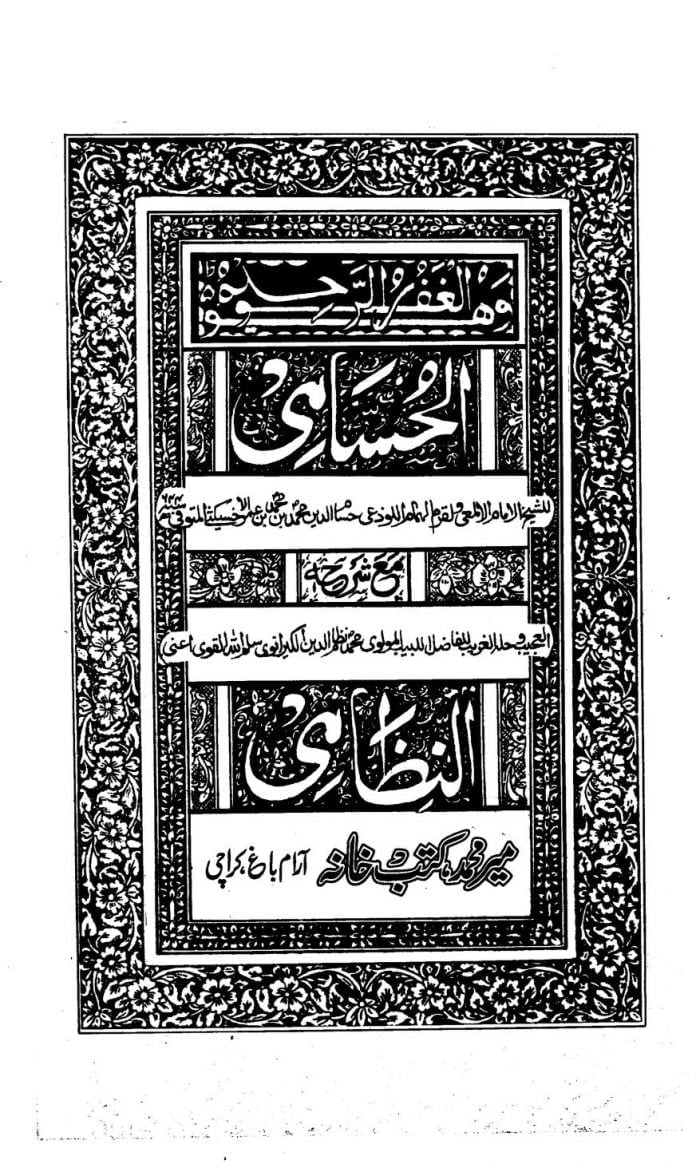 وَهُوَ الغَفُورُ الرَّحِيمُ
الحُسَامِي
للشيخ الامام الالمعى والقرم الهمام اللوذعى حسام الدين محمد بن محمد بن عمر الاخسيكثى المتوفى ٦٤٤ھ
مَعَ شَرْحِهٖ
العجيب وحله الغريب للفاضل اللبيب المولوى محمد نظام الدين الكيرانوى سلمه الله القوى (اعنى)
النِّظَامِي
میر محمد، کتب خانہ آرام باغ، کراچی